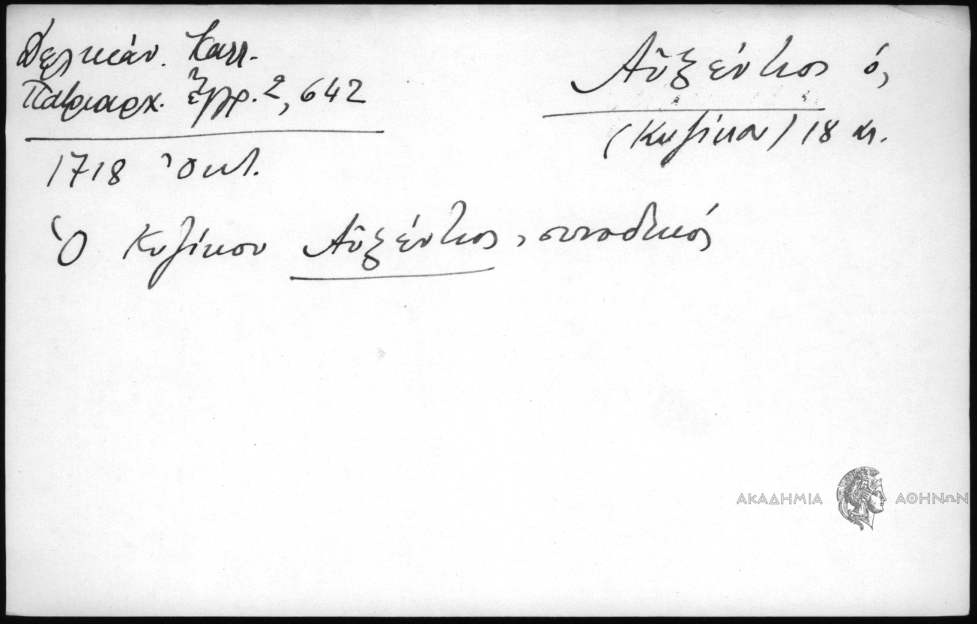 Δελικάν. Καλλ.
Πατριαρχ. Ἔγγρ. 2, 642
1718 Ὀκτ.
Αὐξέντιος ὁ,
(Κυζίκου) 18 αι.
Ὁ Κυζίκου Αὐξέντιος, συνοδικός
ΑΚΑΔΗΜΙΑ ΑΘΗΝΩΝ